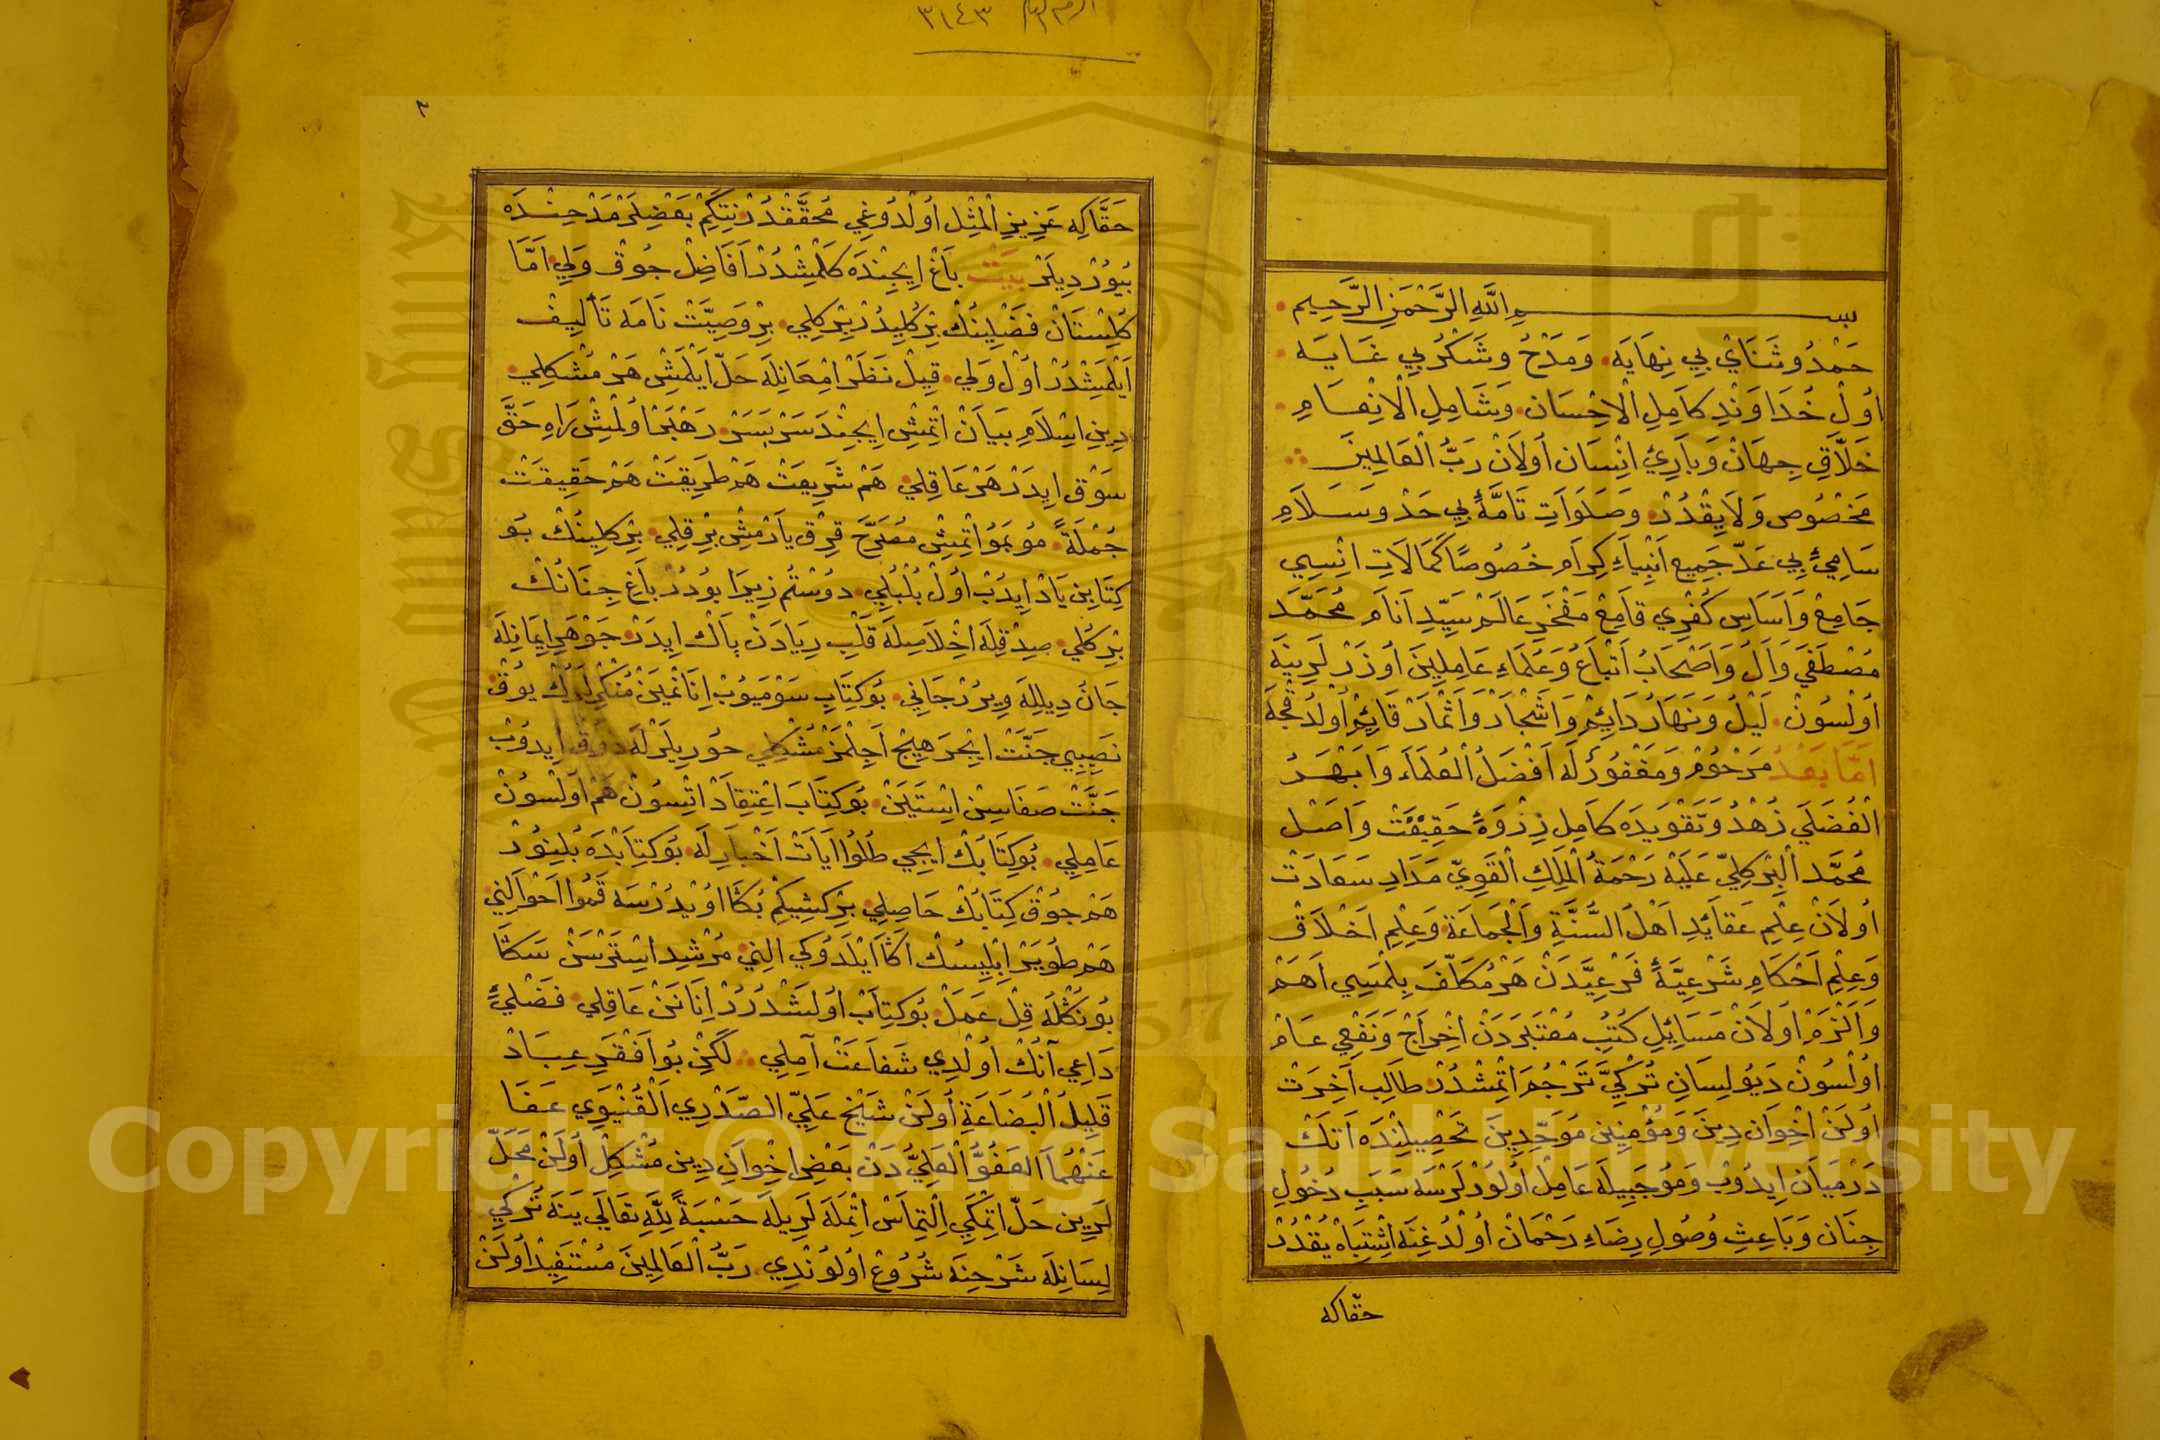 بسم الله الرحمن الرحيم
حمد و ثناي بي نهايه و مدح و شكر بي غايه
اول خداوند كامل الاحسان و شامل الانعام
خلاق جهان و باري انسان اولان رب العالمين
مخصوص و لايقدر و صلوات تامه بي حد و سلام
سامئ بي عد جميع انبياء كرام خصوصا كمالات انسيي
جامع و اساس كفري قامع مفخر عالم سيد انام محمد
مصطفي و ال و اصحاب اتباع و علماء عاملين اوزرلرينه
اولسون ليل و نهار دائم و اشجار و اثمار قائم اولدقجه
اما بعد مرحوم و مغفور له افضل العلماء و ابهر
الفضلي زهد و تقويده كامل ذروه حقيقت واصل
محمد البركلي عليه رحمة الملك القوي مدار سعادت
اولان علم عقائد اهل السنة و الجماعة و علم اخلاق
و علم احكام شرعيه فرعيه دن هر مكلف بلمسي اهم
و الزم اولان مسائل كتب معتبردن اخراج و نفعي عام
اولسون ديو لسان تركي ترجمه اتمشدر طالب اخرت
اولن اخوان دين و مؤمنين موحدين تحصيلنده اتك
درميان ايدوب و موجبيله عامل اولورلرسه سبب دخول
جنان و باعث وصول رضاء رحمان اولدغنه اشتباه يقدر
حقاكه
٢
الرقم العام ٣١٤٣
حقاكه عزيز المثل اولدوغي محققدر نتكم بعضلر مدحنده
بيورديلر بيت باغ ايجنده كلمشدر افاضل جوق ولي اما
كلستان فضلينك بر كليدر بركلي بر وصيت نامه تأليف
ايلمشدر اول ولي قيل نظر امعانله حل ايلمش هر مشكلي
دين اسلام بيان اتمش ايجنده سر بسر رهبر اولمش راه حقه
سوق ايدر هر عاقلي هم شريعت هم طريقت هم حقيقت
جملة مو بمو اتمش مصرح قرق يارمش بر قلي بركلينك بو
كتابن ياد ايدب اول بلبلي دوستم زيرا بودر باغ جنانك
بر كلي صدقله اخلاصله قلب ريادن باك ايدر جوهر ايمانله
جان ديلله ويرر جاني بو كتاب سوميوب انانمين منكرلرك يوق
نصيبي جنت ايجره هيج اجلمز مشكلي حوريلرله ذوق ايدوب
جنت صفاسن استين بو كتاب اعتقاد اتسون هم اولسون
عاملي بو كتابك ايجي طلو ايات اخبارله بو كتابده بلنور
هم جوق كتابك حاصلي بر كشيكم بكا اويدرسه قمو احوالني
هم طويرر ابليسك اكا ايلدوكي الني مرشد استرسن سكا
بونكله قل عمل بو كتاب اولشدرر انانن عاقلي فضلي
داعي آنك اولدي شفاعت آملي لكن بو افقر عباد
قليل البضاعة اولن شيخ علي الصدري القنيوي عفا
عنهما العفو العلي دن بعض اخوان دين مشكل اولن محل
لرين حل اتمكي التماس اتمله لريله حسبة لله تعالي ينه تركي
لسانله شرحنه شروع اولوندي رب العالمين مستفيد اولن